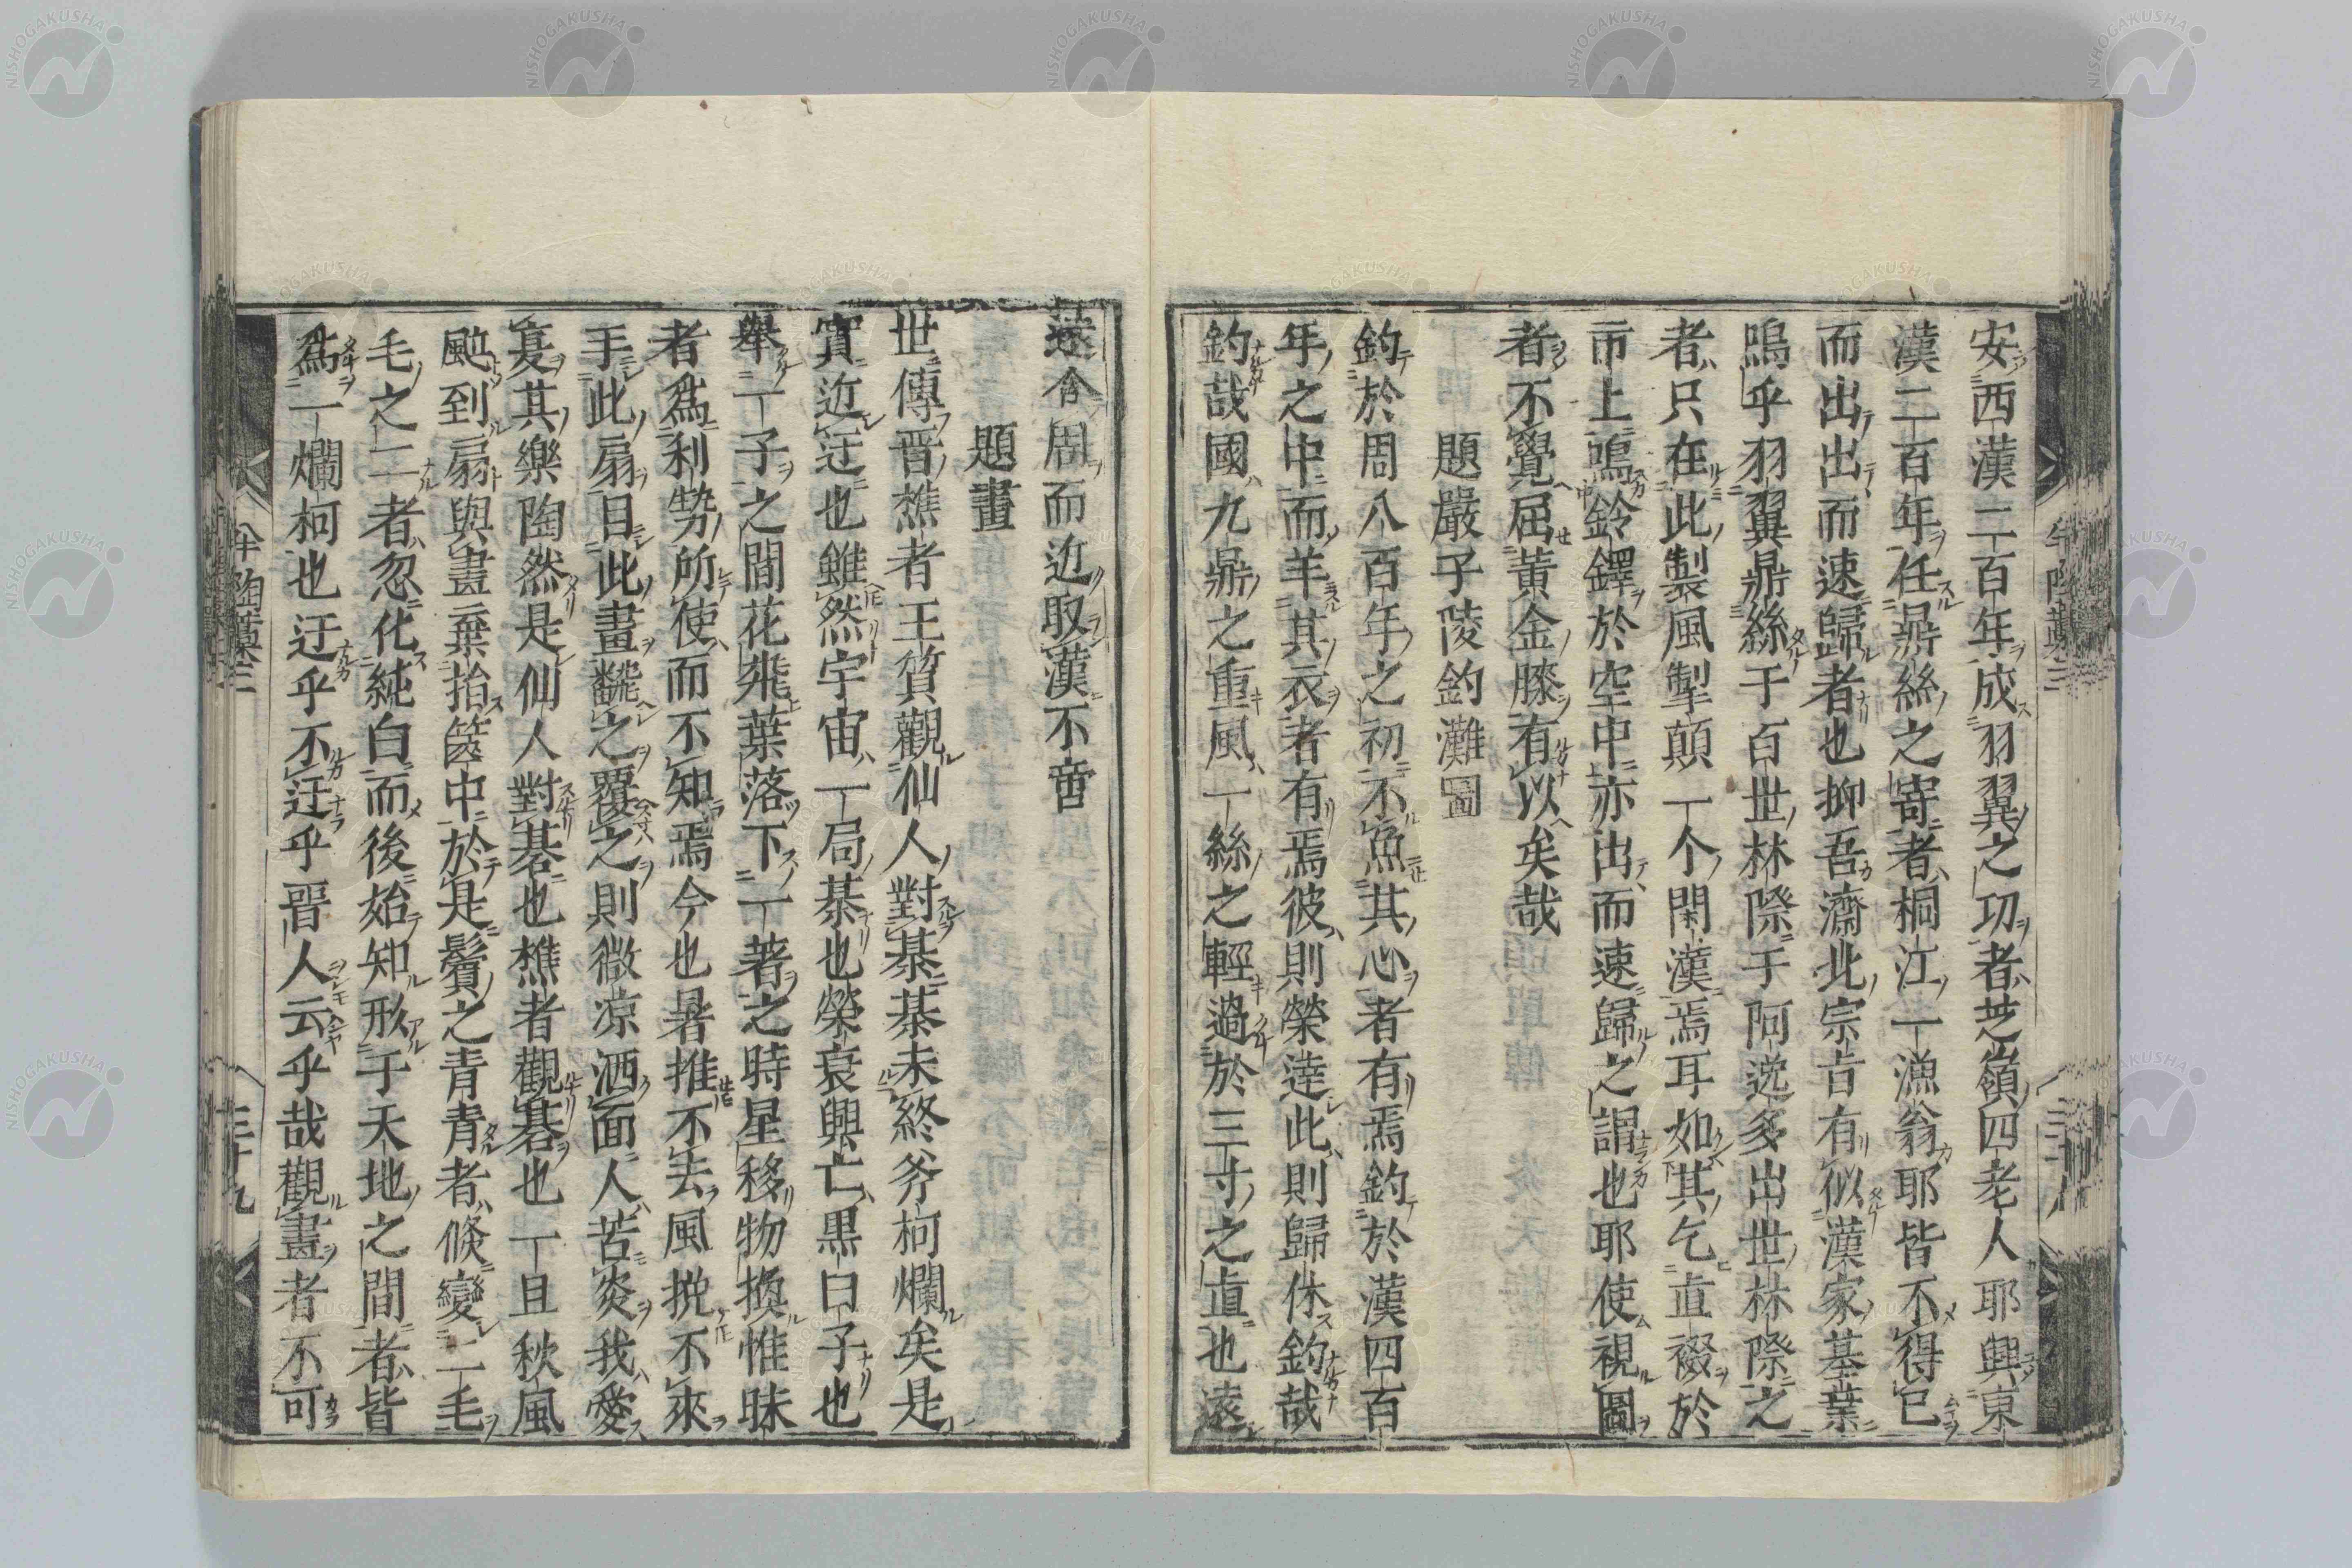 安西漢二百年成羽翼之功者芝嶺四老人耶興東
漢二百年任鼎絲之寄者桐江一漁翁耶皆不得已
而出出而速歸者也抑吾濟北宗旨有似漢家基業
嗚乎羽翼鼎絲于百世林際于阿逸多出世林際之
者只在此製風掣顛一个閑漢焉耳如其乞直裰於
市上鳴鈴鐸於空中亦出而速歸之謂也耶使視圖
者不覺屈黃金膝有以矣哉
題嚴子陵釣灘圖
釣於周八百年之初不魚其心者有焉釣於漢四百
年之中而羊其衣者有焉彼則榮達此則歸休釣哉
釣哉國九鼎之重風一絲之輕過於三寸之直也遠
遠舍周而近取漢不啻
題畫
世傳晋樵者王質觀仙人對棊棊未終斧柯爛矣是
實近迂也雖然宇宙一局棊也榮衰興亡黒白子也
舉一子之間花飛葉落下一著之時星移物換惟昧
者爲利勢所使而不知焉今也暑推不去風挽不來
手此扇目此畫飜之覆之則微涼洒面人苦炎我愛
夏其樂陶然是仙人對碁也樵者觀碁也一旦秋風
颭到扇與畫棄捨篋中於是鬢之青青者倏變二毛
毛之二者忽化純白而後始知形于天地之間者皆
爲一爛柯也迂乎不迂乎晋人云乎哉觀畫者不可
半陶藁三
三十九
NISHOGAKUSHA